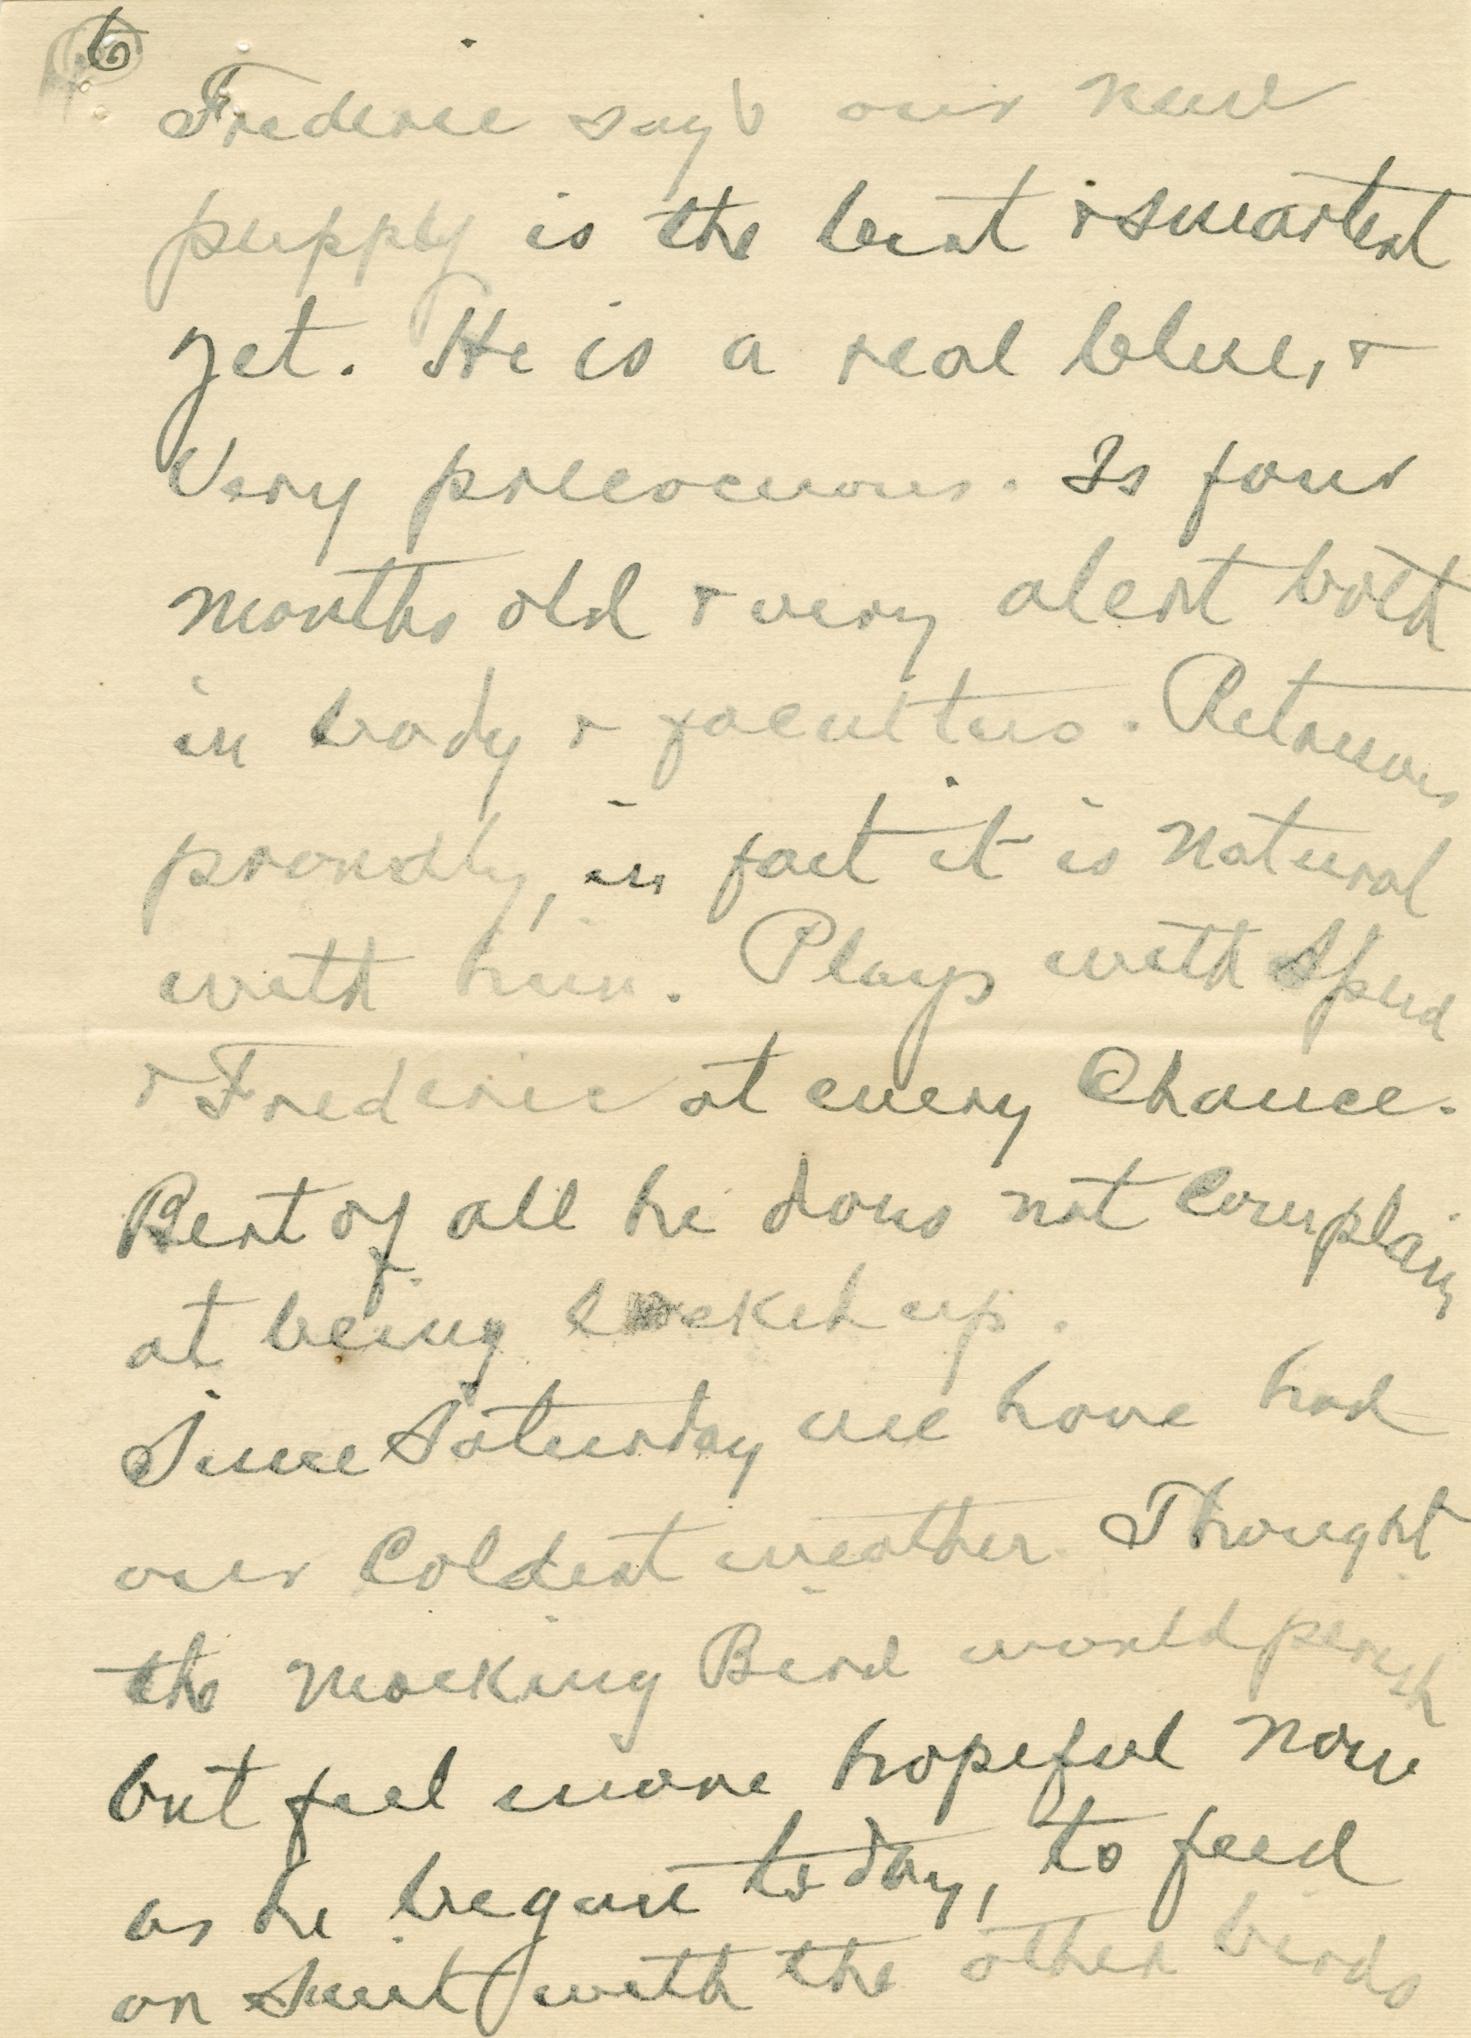 6
Frederic says our new
puppy is the best & smartest
yet. He is a real blue, &
Very precocious. Is four
months old & very alert both
in body & faculties. Retrieves
proudly, in fact it is natural
with him. Plays with Spud
& Frederic at every Chance.
Best of all he does not Complain
at being locked up.
Since Saturday we have had
our Coldest weather. Thought
the Mocking Bird would perish
but feel more hopeful now
as he began today, to feed
on Suet with the other birds